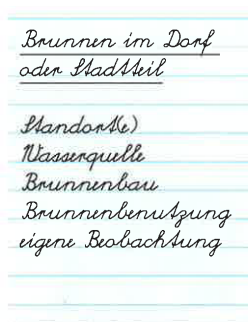 Brunnen im Dorf
oder Stadtteil
Standort(e)
Wasserquelle
Brunnenbau
Brunnenbenutzung
eigene Beobachtung